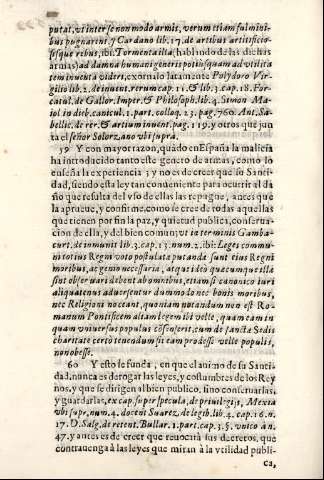 putat, vt inter se non modo armis, verum etiam fulmini-
bus pugnarent, y Cardano lib. 17. de artibus artificio-
sisque rebus, ibi: Tormenta illa (hablando de las dichas
armas) ad damna humani generis potius quam ad vtilita
tem inuenta videri, exornalo latamente Polydoro Vir-
gilio lib. 2. de inuent. rerum cap. 11. & lib. 3. cap. 18. For-
catul. de Gallor. Imper. & Philosoph. lib. 4. Simon Ma-
iol in dieb. canicul. 1. part. colloq. 23. pag. 760. Ant. Sa-
bellic. de rer. & artium inuent. pag. 119. y otros que jun
ta el señor Solorzano vbi supra.
59 Y con mayor razon, quãdo en España la malicia
ha introducido tanto este genero de armas, como lo
enseña la experiencia; y no es de creer que su Santi-
dad, siendo esta ley tan conueniente para ocurrir al da
ño que resulta del vso de ellas las repugne, antes que
la aprueue, y confirme, como se cree de todas aquellas
que tienen por fin la paz, y quietud publica, conserua-
cion de ella, y del bien comun; vt in terminis Gamba-
curt. de inmunit lib. 3. cap. 13. num. 2. ibi: Leges commu-
ni totius Regni voto postulata putandæ sunt eius Regni
moribus, ac genio necessaria, atque ideo quæcumque illæ
sint obseruari debent ab omnibus, etiam si canonico iuri
aliquatenus aduersentur dummodo nec bonis moribus,
nec Religioni noceant, quoniam notandum non est Ro-
manum Pontificem aliam legem ibi velle, quam eam in
quam vniuersus populus cõsenserit, cum de sancta Sedis
charitate certo tenendum sit eam prodesse velle populis,
non obesse.
60 Y esto se funda, en que el animo de su Santi-
dad, nunca es derogar las leyes, y costumbres de los Rey
nos, y que se dirigen al bien publico, sino conseruarlas,
y guardarlas, ex cap. super specula, de priuilegijs, Mexia
vbi supr. num. 4. docent Suarez. de legib. lib. 4. cap. 16. n.
17. D. Salg. de retent. Bullar. 1. part. cap. 3. §. vnico à n.
47. y antes es de creer que reuocirà sus decretos, que
contrauenga à las leyes que miran à la vtilidad publi-
ca,